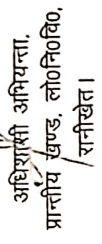 अधिशासी अभियन्ता,
प्रान्तीय खण्ड, लो०नि०वि०,
रानीखेत।